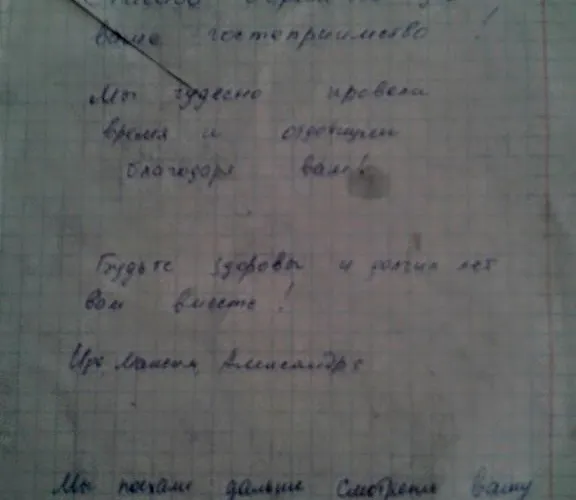 Спасибо огромное за
ваше гостеприимство!
Мы чудесно провели
время и отдохнули
благодаря вам!
Будьте здоровы и долгих лет
вам вместе!
Максим, Александра
Мы поехали дальше смотреть вашу